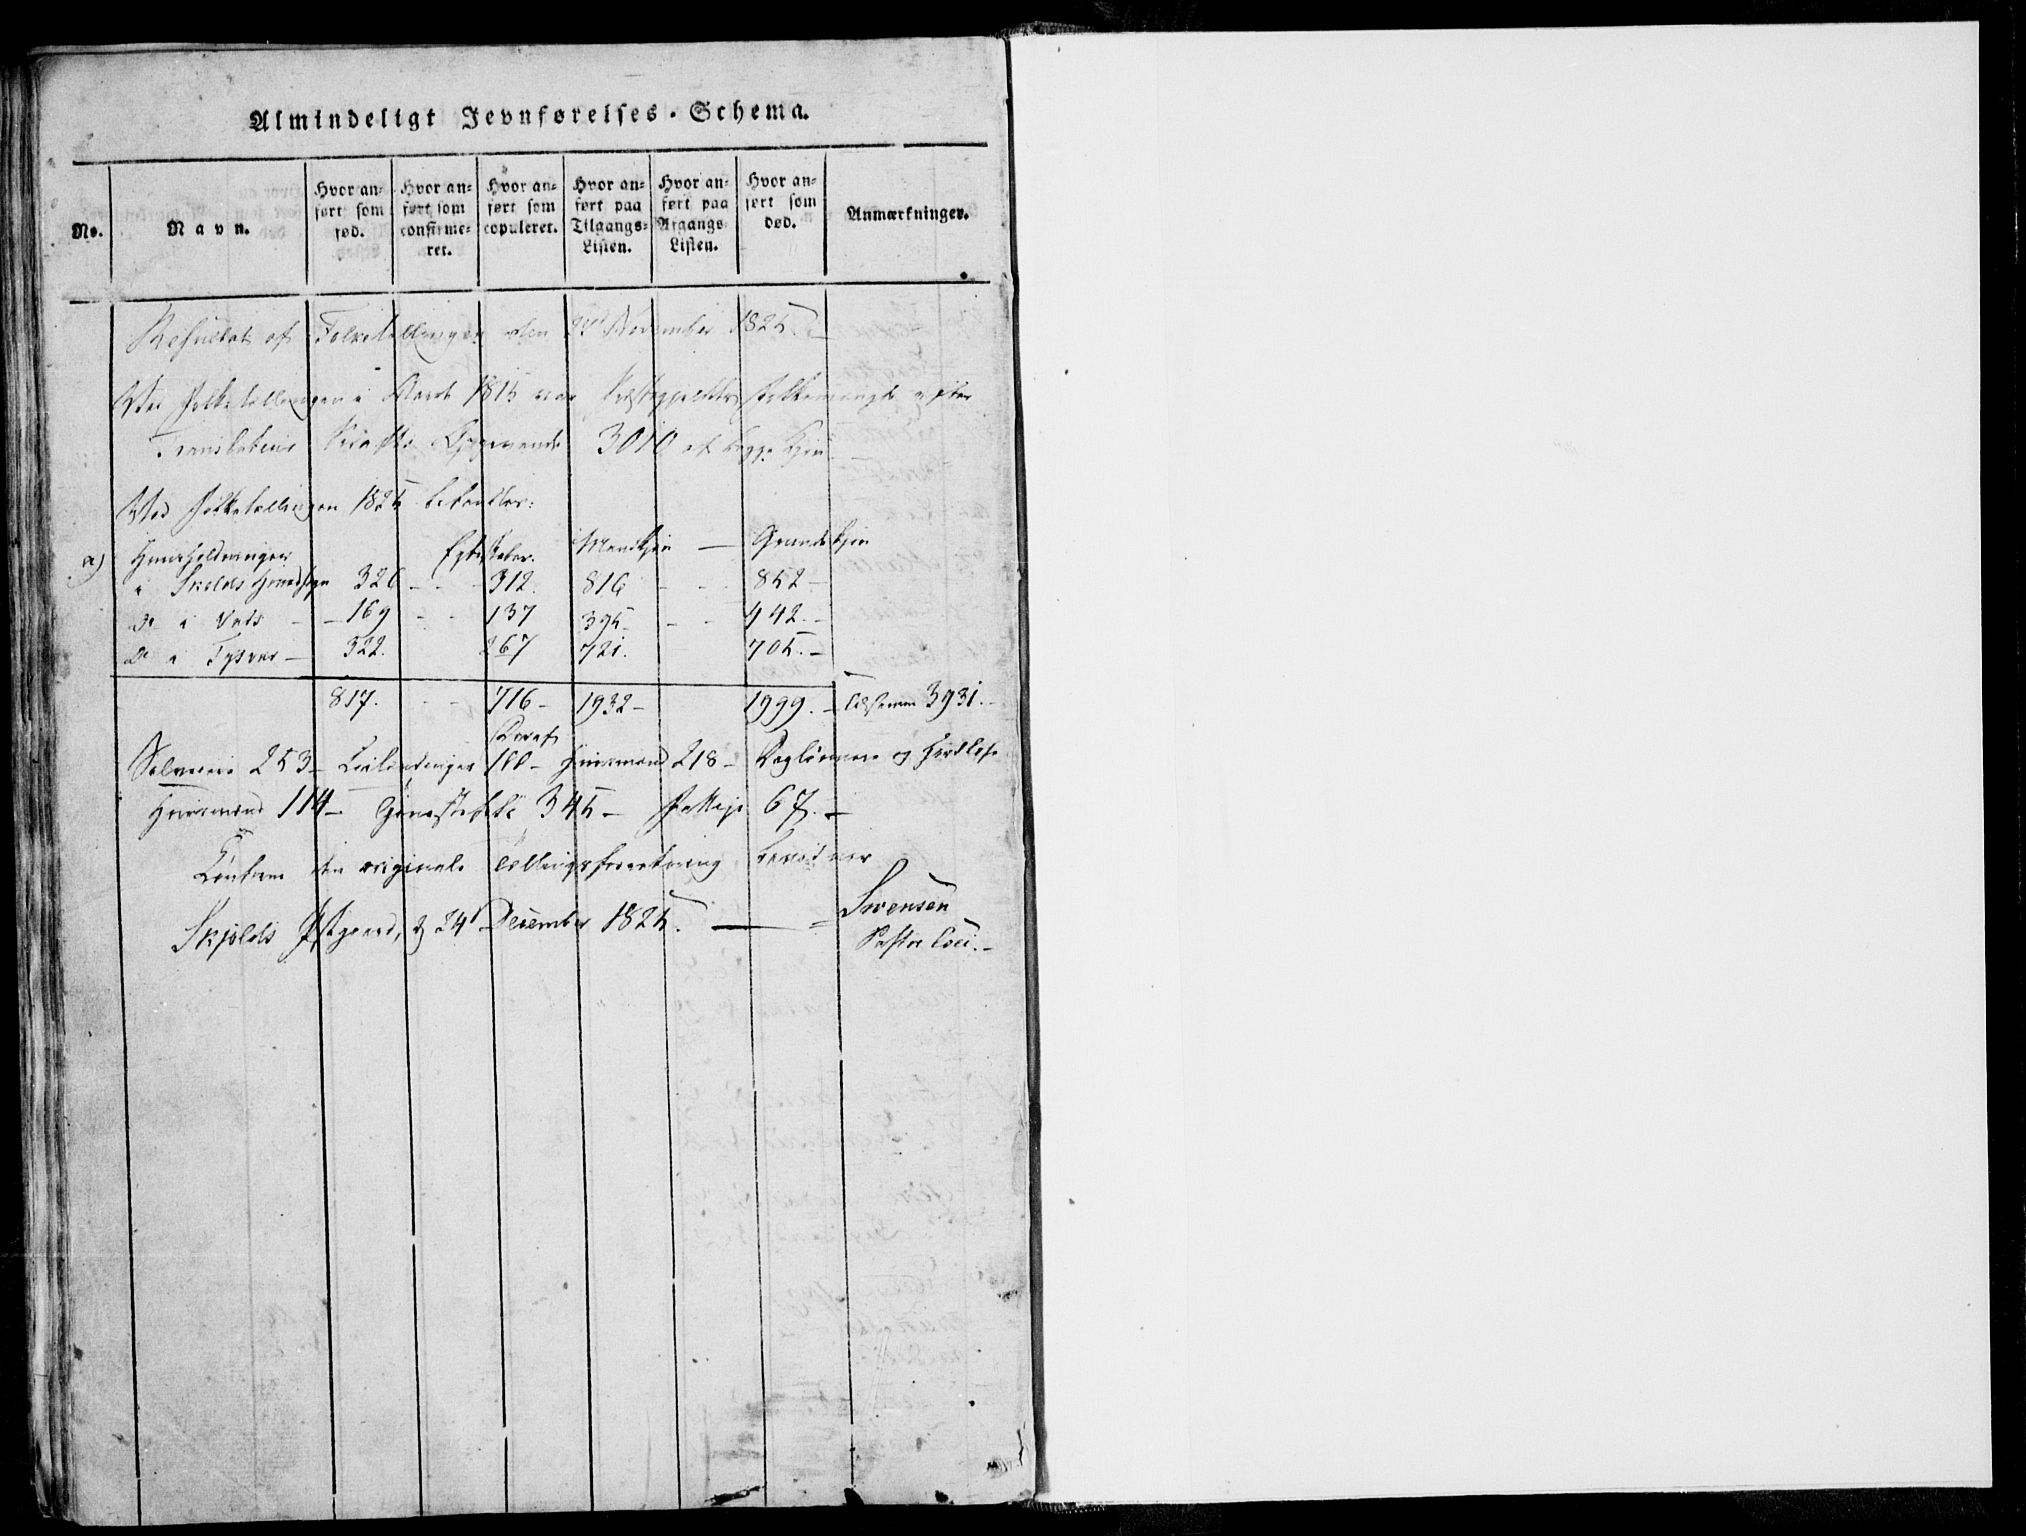 Almindeligt Jevnførelses-Schema.
No.
Navn.
Hvor anført som fød.
Hvor anført som confirmeret.
Hvor anført som copuleret.
Hvor anført paa Tilgangs-Listen.
Hvor anført paa Afgangs-Listen.
Hvor anført som død.
Anmærkninger.
Resultat af Folketællingen den November 1825.
Ved Folketællingen i 1815 var Præstegjeldets Folkemængde efter
3010 af begge Kjøn
Ved Folketællingen 1825 befandtes:
a) Huusholdninger Ægteskaber. Mandkjøn — Qvindekjøn
i Skjolds Hovedsogn 326 - - 312. 816 - - 852 -
Do i Vats - - 169 - - 137 395 - - 442. -
Do i Tysvær - 322. 267 721. 705. -
817. - - 716 - 1932 - 1999. - Tilsammen 3931. -
Deraf
Selveiere 253 - Leilændinger - Huusmænd 218 - Daglønnere og Jordløse
Huusmænd 114 - Tjenestefolk 345 - Fattige 67. -
originale Tællings
Skjolds Præstgaard, d 24 December 1825. — = Svensen
Pastor loci. -